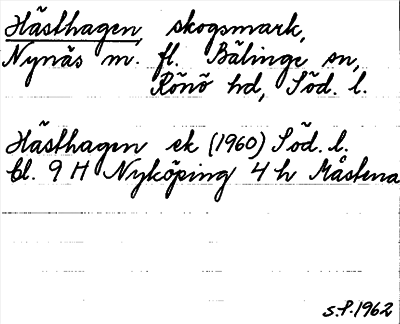 Hästhagen, skogsmark,
Nynäs m. fl. Bälinge sn,
Rönö hd, Söd. l.
Hästhagen ek (1960) Söd. l.
bl. 9 H Nyköping 4 h Måstena
s.P.1962